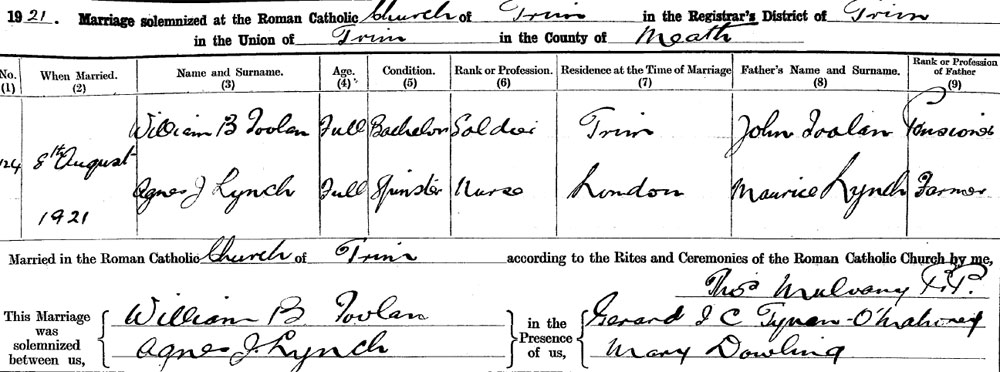 1921. Marriage solemnized at the Roman Catholic Church of Trim in the Registrar's District of Trim
in the Union of Trim in the County of Meath
No. When Married. Name and Surname. Age. Condition. Rank or Profession. Residence at the Time of Marriage Father's Name and Surname. Rank or Profession of Father
(1) (2) (3) (4) (5) (6) (7) (8) (9)
William B Toolan Full Bachelor Soldier Trim John Toolan Pensioner
124 8th August
Agnes J Lynch Full Spinster Nurse London Maurice Lynch Farmer
1921
Married in the Roman Catholic Church of Trim according to the Rites and Ceremonies of the Roman Catholic Church by me,
Thos Mulvany P.P.
This Marriage was solemnized between us,
William B Toolan
Agnes J. Lynch
in the Presence of us,
Gerard J C Tynan-O'Mahony
Mary Dowling